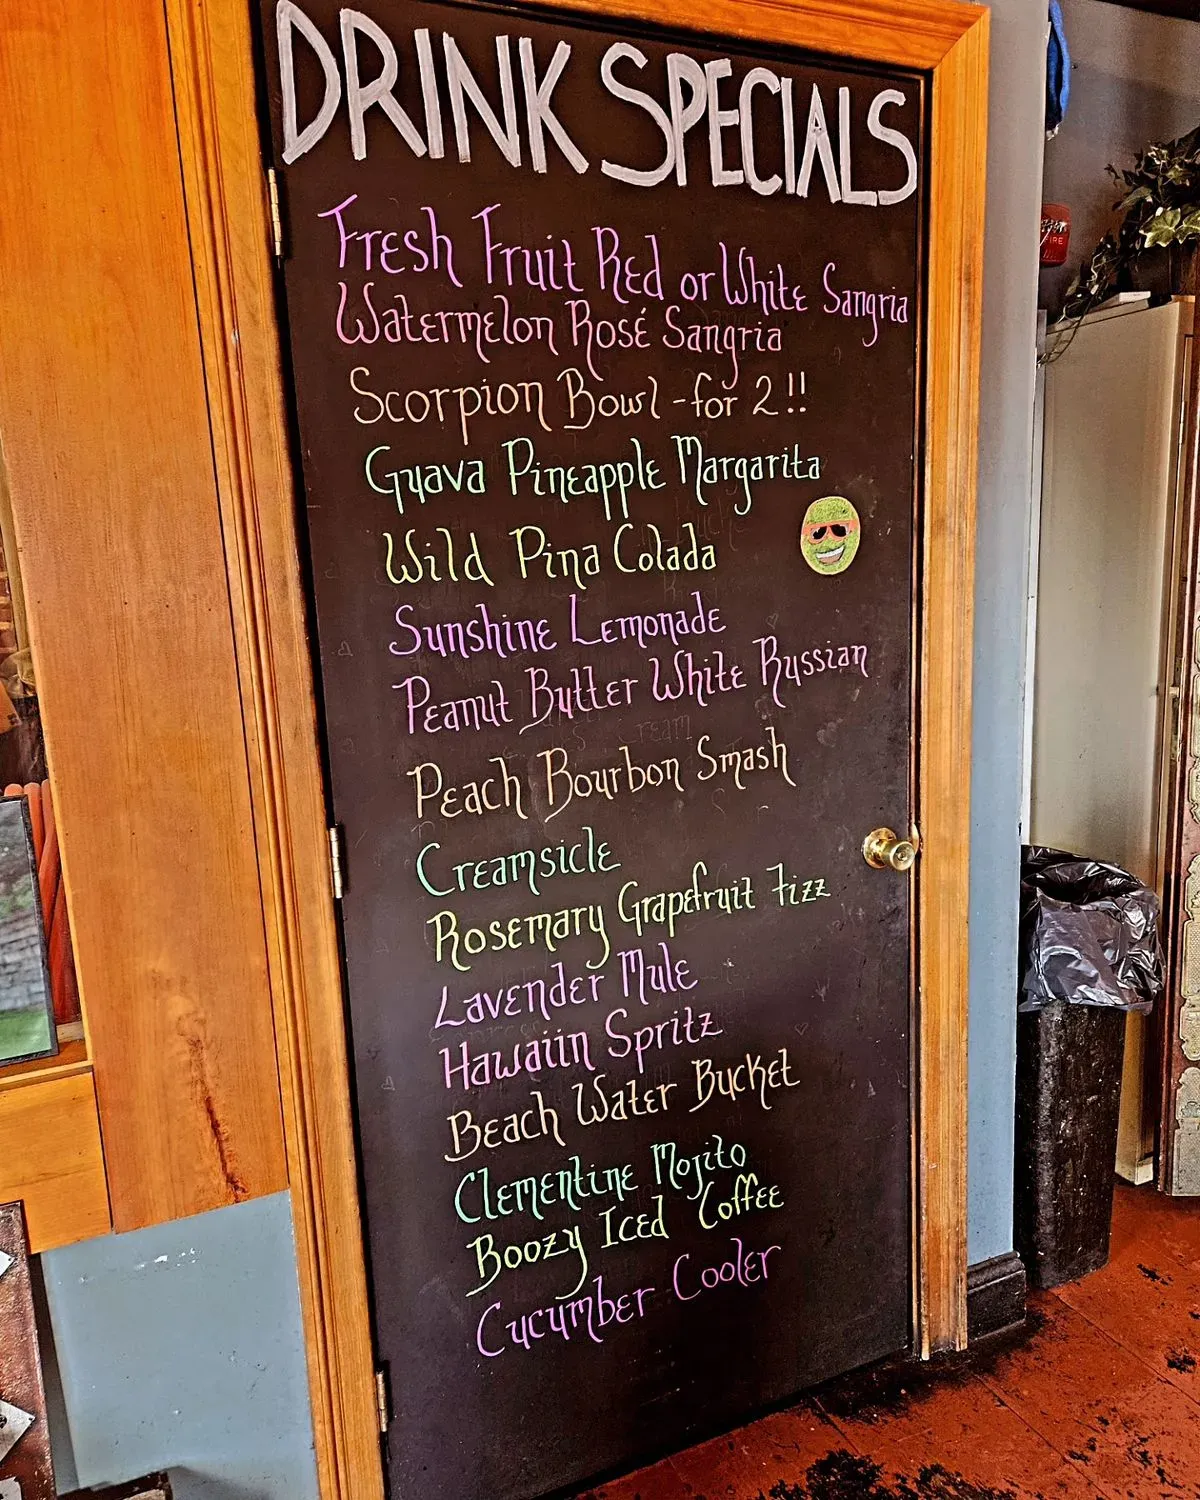 DRINK SPECIALS
Fresh Fruit Red or White Sangria
Watermelon Rosé Sangria
Scorpion Bowl - for 2 !!
Guava Pineapple Margarita
Wild Pina Colada
Sunshine Lemonade
Peanut Butter White Russian
Peach Bourbon Smash
Creamsicle
Rosemary Grapefruit Fizz
Lavender Mule
Hawaiin Spritz
Beach Water Bucket
Clementine Mojito
Boozy Iced Coffee
Cucumber Cooler
FIRE